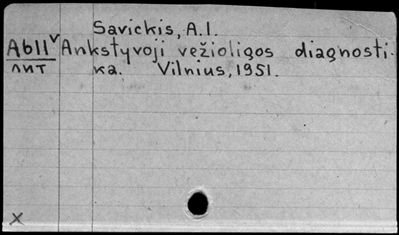 Savickis, A.I.
Ab11ᵛ Ankstyvoji vėžioligos diagnosti-
лит ka. Vilnius, 1951.
X